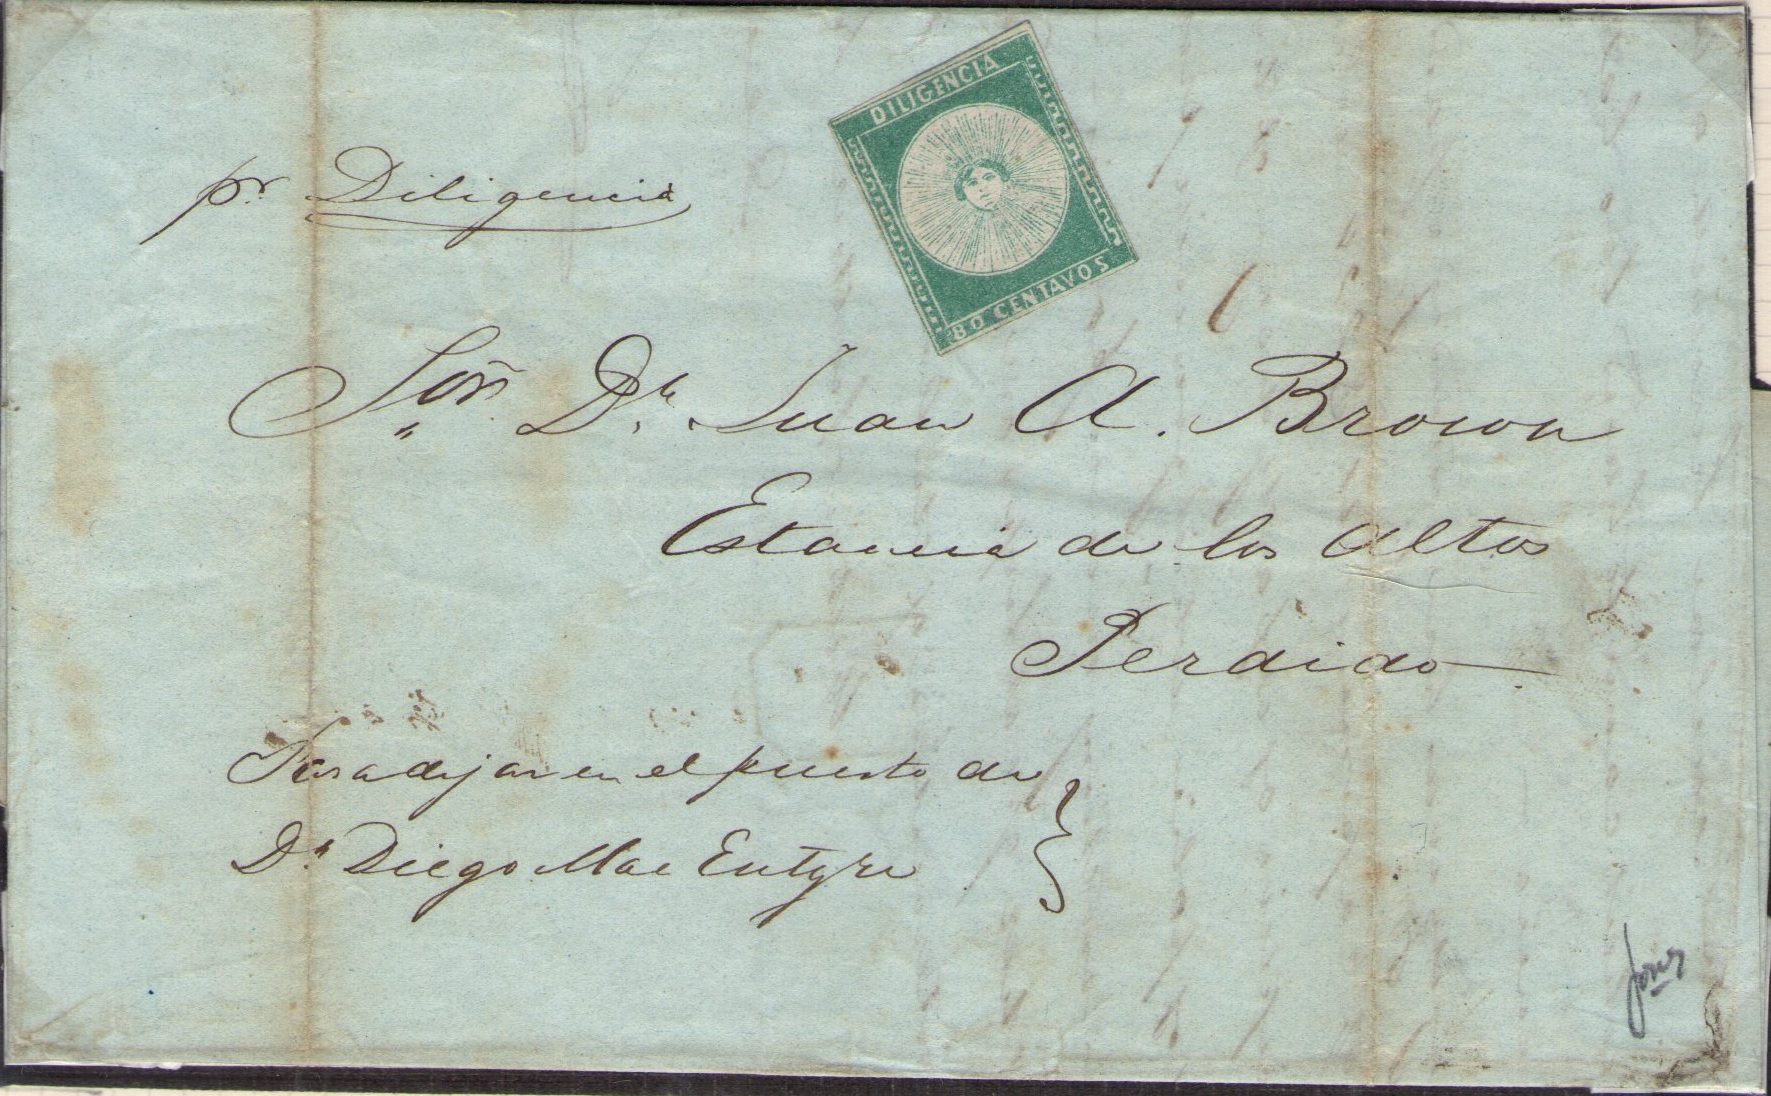 DILIGENCIA
80 CENTAVOS.
pr Diligencia
Sor̃ Dn. Juan A. Brown
Estancia de los Altos
Perdido
Para dejar en el puesto de
Dn Diego Mac Entyre